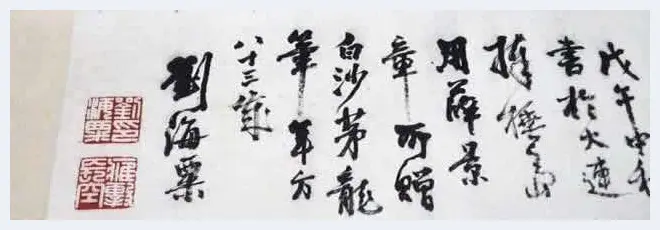 戊午中秋
書於大連
棒棰島
用薛景
章所贈
白沙茅龍
筆年方
八十三歲
劉海粟
劉印
海粟
長空